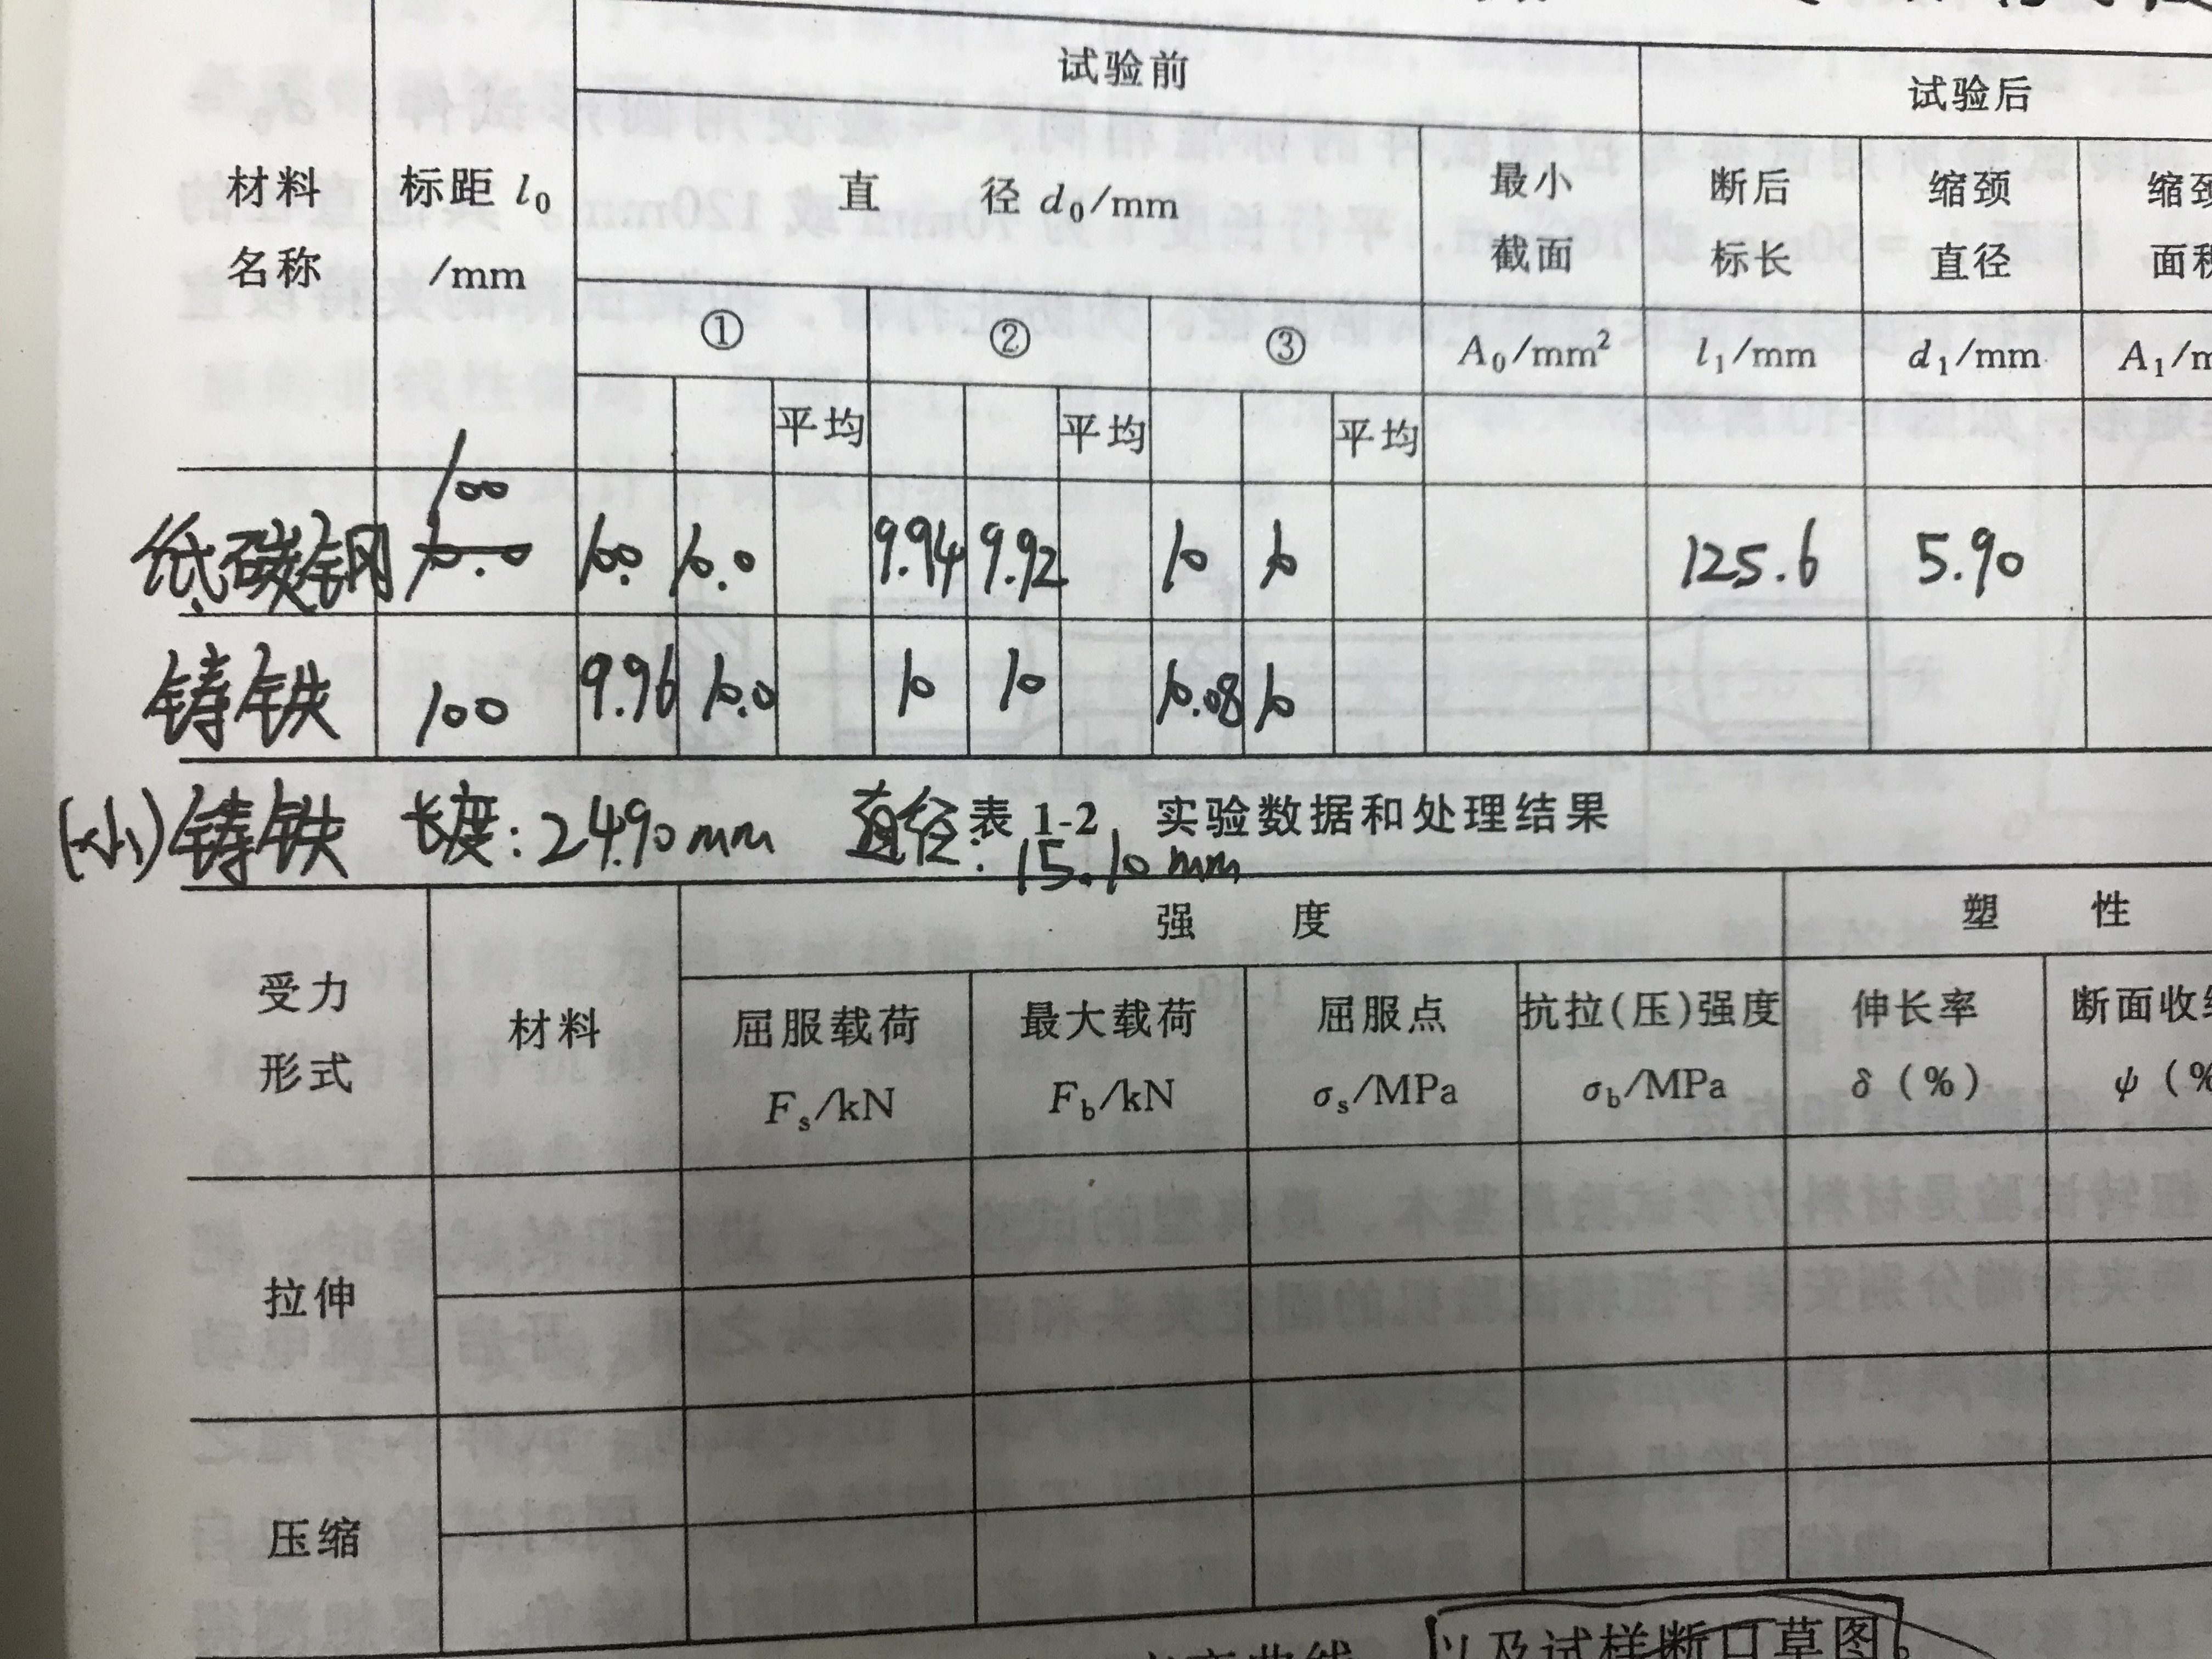 试验前 试验后
材料名称 标距 l₀/mm 直径 d₀/mm 最小截面 A₀/mm² 断后标长 l₁/mm 缩颈直径 d₁/mm
① ② ③
平均 平均 平均
低碳钢 100 10.0 10.0 9.94 9.92 10 10 125.6 5.90
铸铁 100 9.96 10.0 10 10 10.08 10
(小)铸铁 长度:24.90mm 直径:15.10mm
表 1-2 实验数据和处理结果
受力形式 材料 强度 塑性
屈服载荷 Fₛ/kN 最大载荷 F_b/kN 屈服点 σₛ/MPa 抗拉(压)强度 σ_b/MPa 伸长率 δ(%) 断面收 ψ(%
拉伸
压缩
以及试样断口草图。